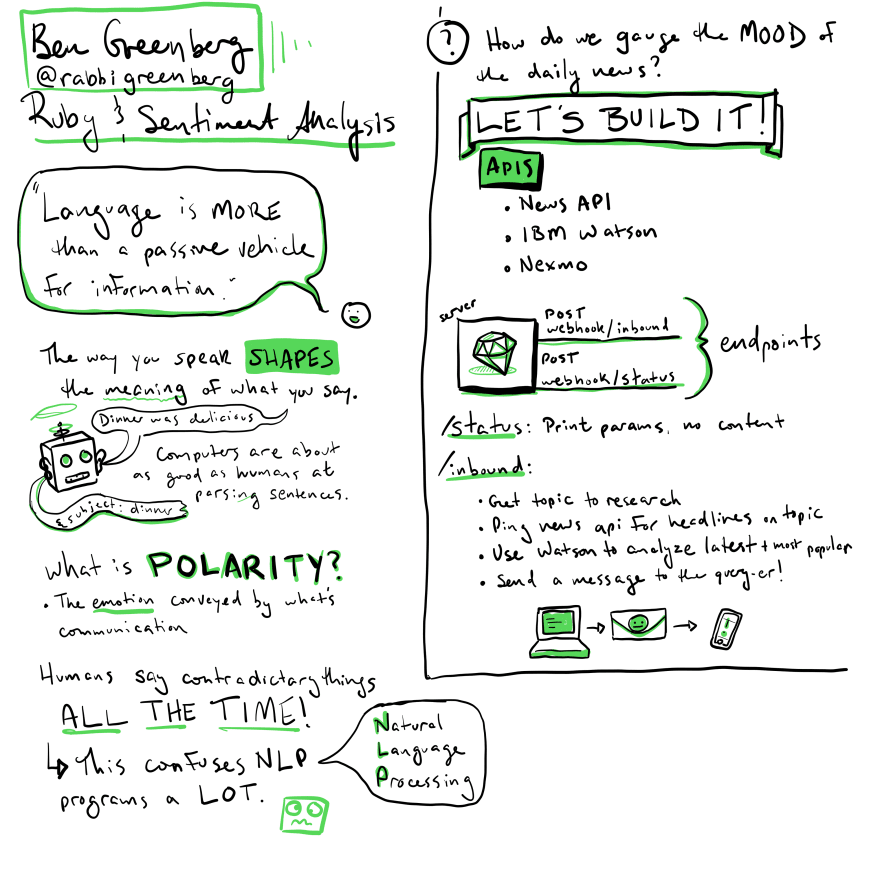 Ben Greenberg
@rabbigreenberg
Ruby & Sentiment Analysis
"Language is MORE
than a passive vehicle
for information."
The way you speak SHAPES
the meaning of what you say.
Dinner was delicious
Computers are about
as good as humans at
parsing sentences.
& subject: dinner
What is POLARITY?
• The emotion conveyed by what's
communication
Humans say contradictary things
ALL THE TIME!
↳ This confuses NLP
programs a LOT.
Natural
Language
Processing
? How do we gauge the MOOD of
the daily news?
LET'S BUILD IT!
APIS
• News API
• IBM Watson
• Nexmo
server
POST
webhook/inbound
POST
webhook/status
endpoints
/status: Print params, no content
/inbound:
• Get topic to research
• Ping news api for headlines on topic
• Use Watson to analyze latest + most popular
• Send a message to the query-er!